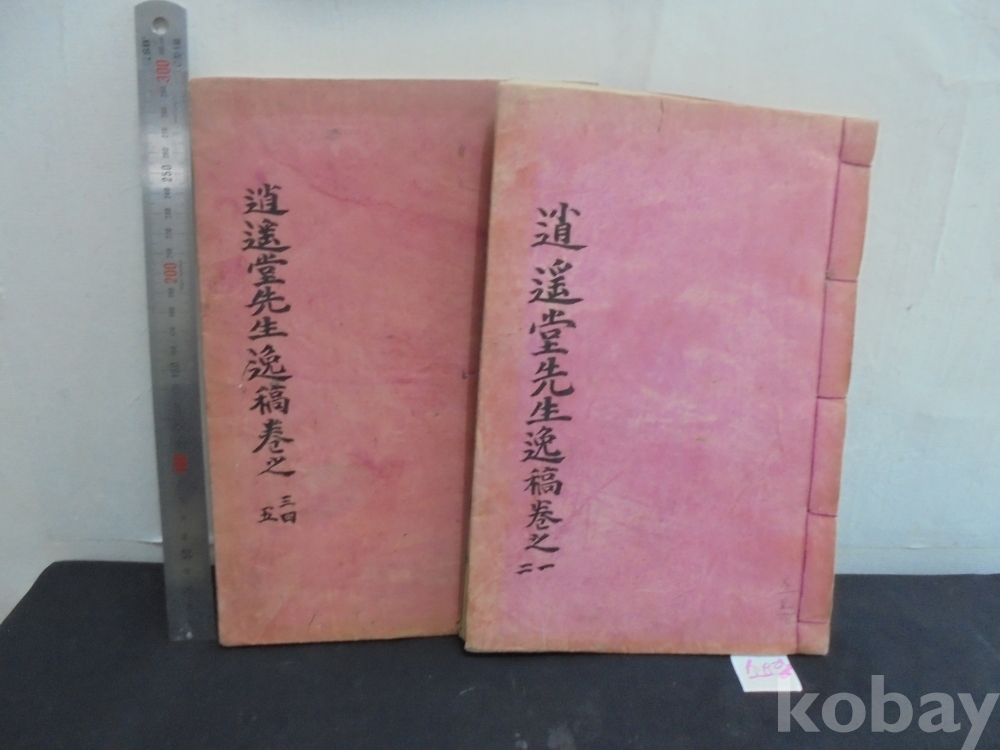 逍遙堂先生逸稿卷之
三四
五
逍遙堂先生逸稿卷之
一
二
300
250
200
kobay